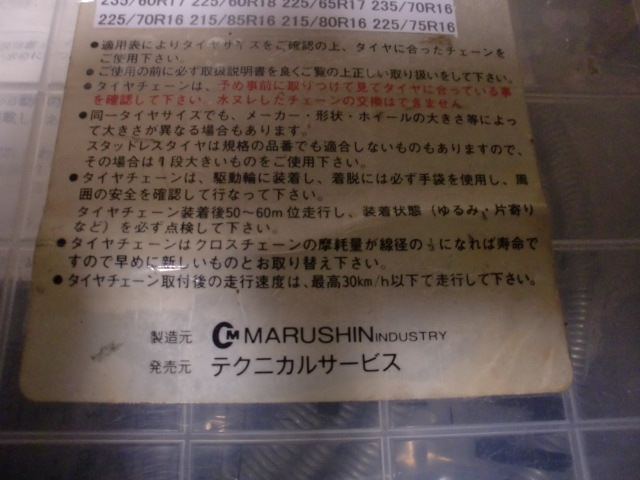 235/60R17 225/60R18 225/65R17 235/70R16
225/70R16 215/85R16 215/80R16 225/75R16
●適用表によりタイヤサイズをご確認の上、タイヤに合ったチェーンを
ご使用下さい。
●ご使用の前に必ず取扱説明書を良くご覧の上正しい取り扱いをして下さい。
●タイヤチェーンは、予め事前に取りつけて見てタイヤに合っている事
を確認して下さい。水ヌレしたチェーンの交換はできません
●同一タイヤサイズでも、メーカー・形状・ホイールの大きさ等によっ
て大きさが異なる場合もあります。
スタッドレスタイヤは規格の品番でも適合しないものもありますので、
その場合は1段大きいものをご使用下さい。
●タイヤチェーンは、駆動輪に装着し、着脱には必ず手袋を使用し、周
囲の安全を確認して行なって下さい。
タイヤチェーン装着後50〜60m位走行し、装着状態(ゆるみ・片寄り
など)を必ず点検して下さい。
●タイヤチェーンはクロスチェーンの摩耗量が線径の⅓になれば寿命で
すので早めに新しいものとお取り替え下さい。
●タイヤチェーン取付後の走行速度は、最高30km/h以下で走行して下さい。
製造元 CM MARUSHIN INDUSTRY
発売元 テクニカルサービス